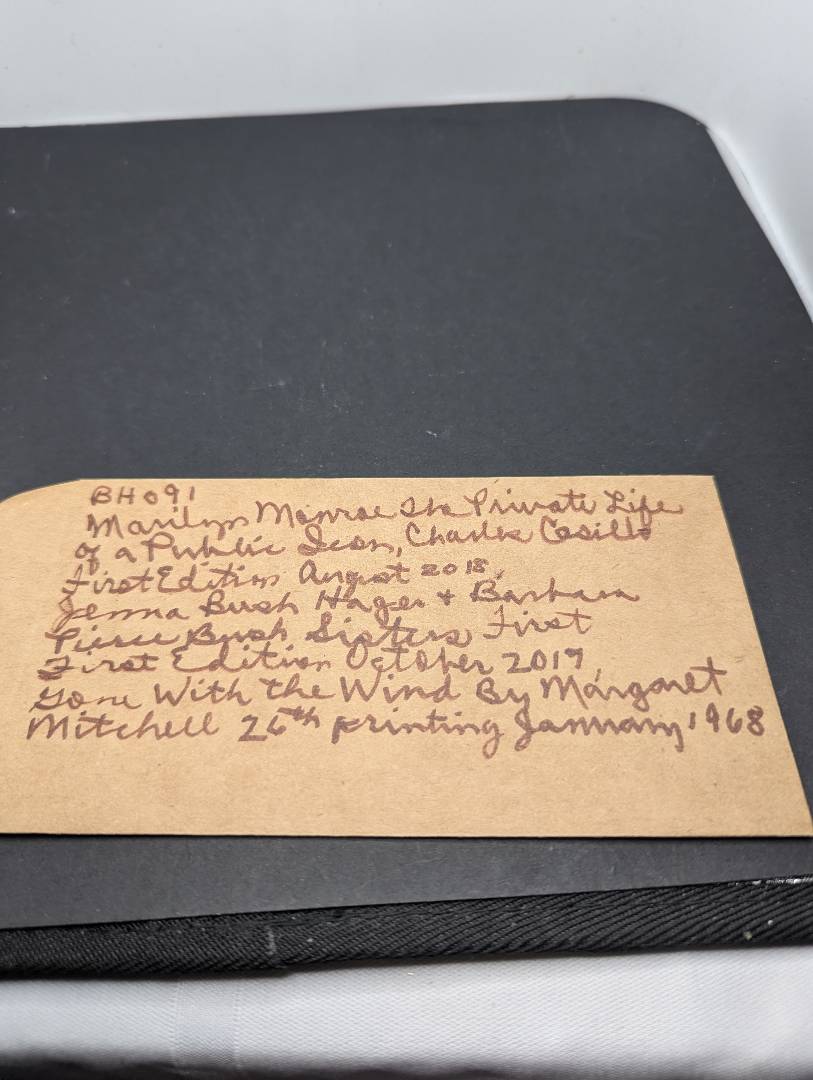 BH091
Marilyn Monroe The Private Life
of a Public Icon, Charles Casillo
First Edition August 2018,
Jenna Bush Hager + Barbara
Pierce Bush Sisters First
First Edition October 2017,
Gone With the Wind By Margaret
Mitchell 26th printing January 1968